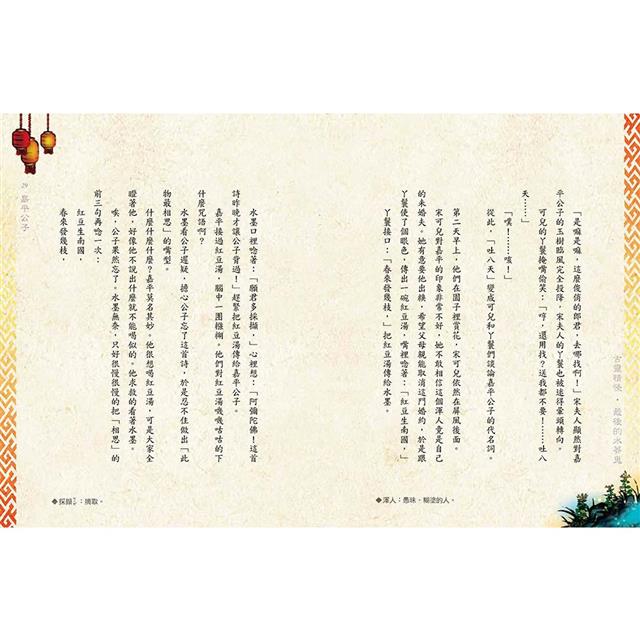 古靈精怪・最後的水莽鬼
「是嘛是嘛,這麼俊俏的郎君,去哪找啊!」宋夫人顯然對嘉
平公子的玉樹臨風完全投降,宋夫人的丫鬟也被迷得暈頭轉向。
可兒的丫鬟掩嘴偷笑:「哼,還用找?送我都不要!……吐八
天……」
「噗!……咳!」
從此,「吐八天」變成可兒和丫鬟們談論嘉平公子的代名詞。
第二天早上,他們在園子裡賞花,宋可兒依然在屏風後面。
宋可兒對嘉平的印象非常不好,她不敢相信這個渾人竟是自己
的未婚夫。她有意要他出糗,希望父母親能取消這門婚約,於是跟
丫鬟使了個眼色,傳出一碗紅豆湯,嘴裡唸著:「紅豆生南國,」
丫鬟接口:「春來發幾枝,」把紅豆湯傳給水墨。
◆渾人:愚昧、糊塗的人。
水墨口裡唸著:「願君多採擷,」心裡想:「阿彌陀佛!這首
詩昨晚才讓公子背過!」趕緊把紅豆湯傳給嘉平公子。
嘉平接過紅豆湯,腦中一團糨糊。他們對紅豆湯嘰嘰咕咕的下
什麼咒語啊?
水墨看公子遲疑,擔心公子忘了這首詩,於是忍不住做出「此
物最相思」的嘴型。
什麼什麼什麼?嘉平莫名其妙。他很想喝紅豆湯,可是大家全
瞪著他,好像他不說出什麼就不能喝似的。他求救的看著水墨。
唉,公子果然忘了。水墨無奈,只好很慢很慢的把「相思」的
前三句再唸一次:
紅豆生南國,
春來發幾枝,
◆採擷:摘取。
29
嘉平公子